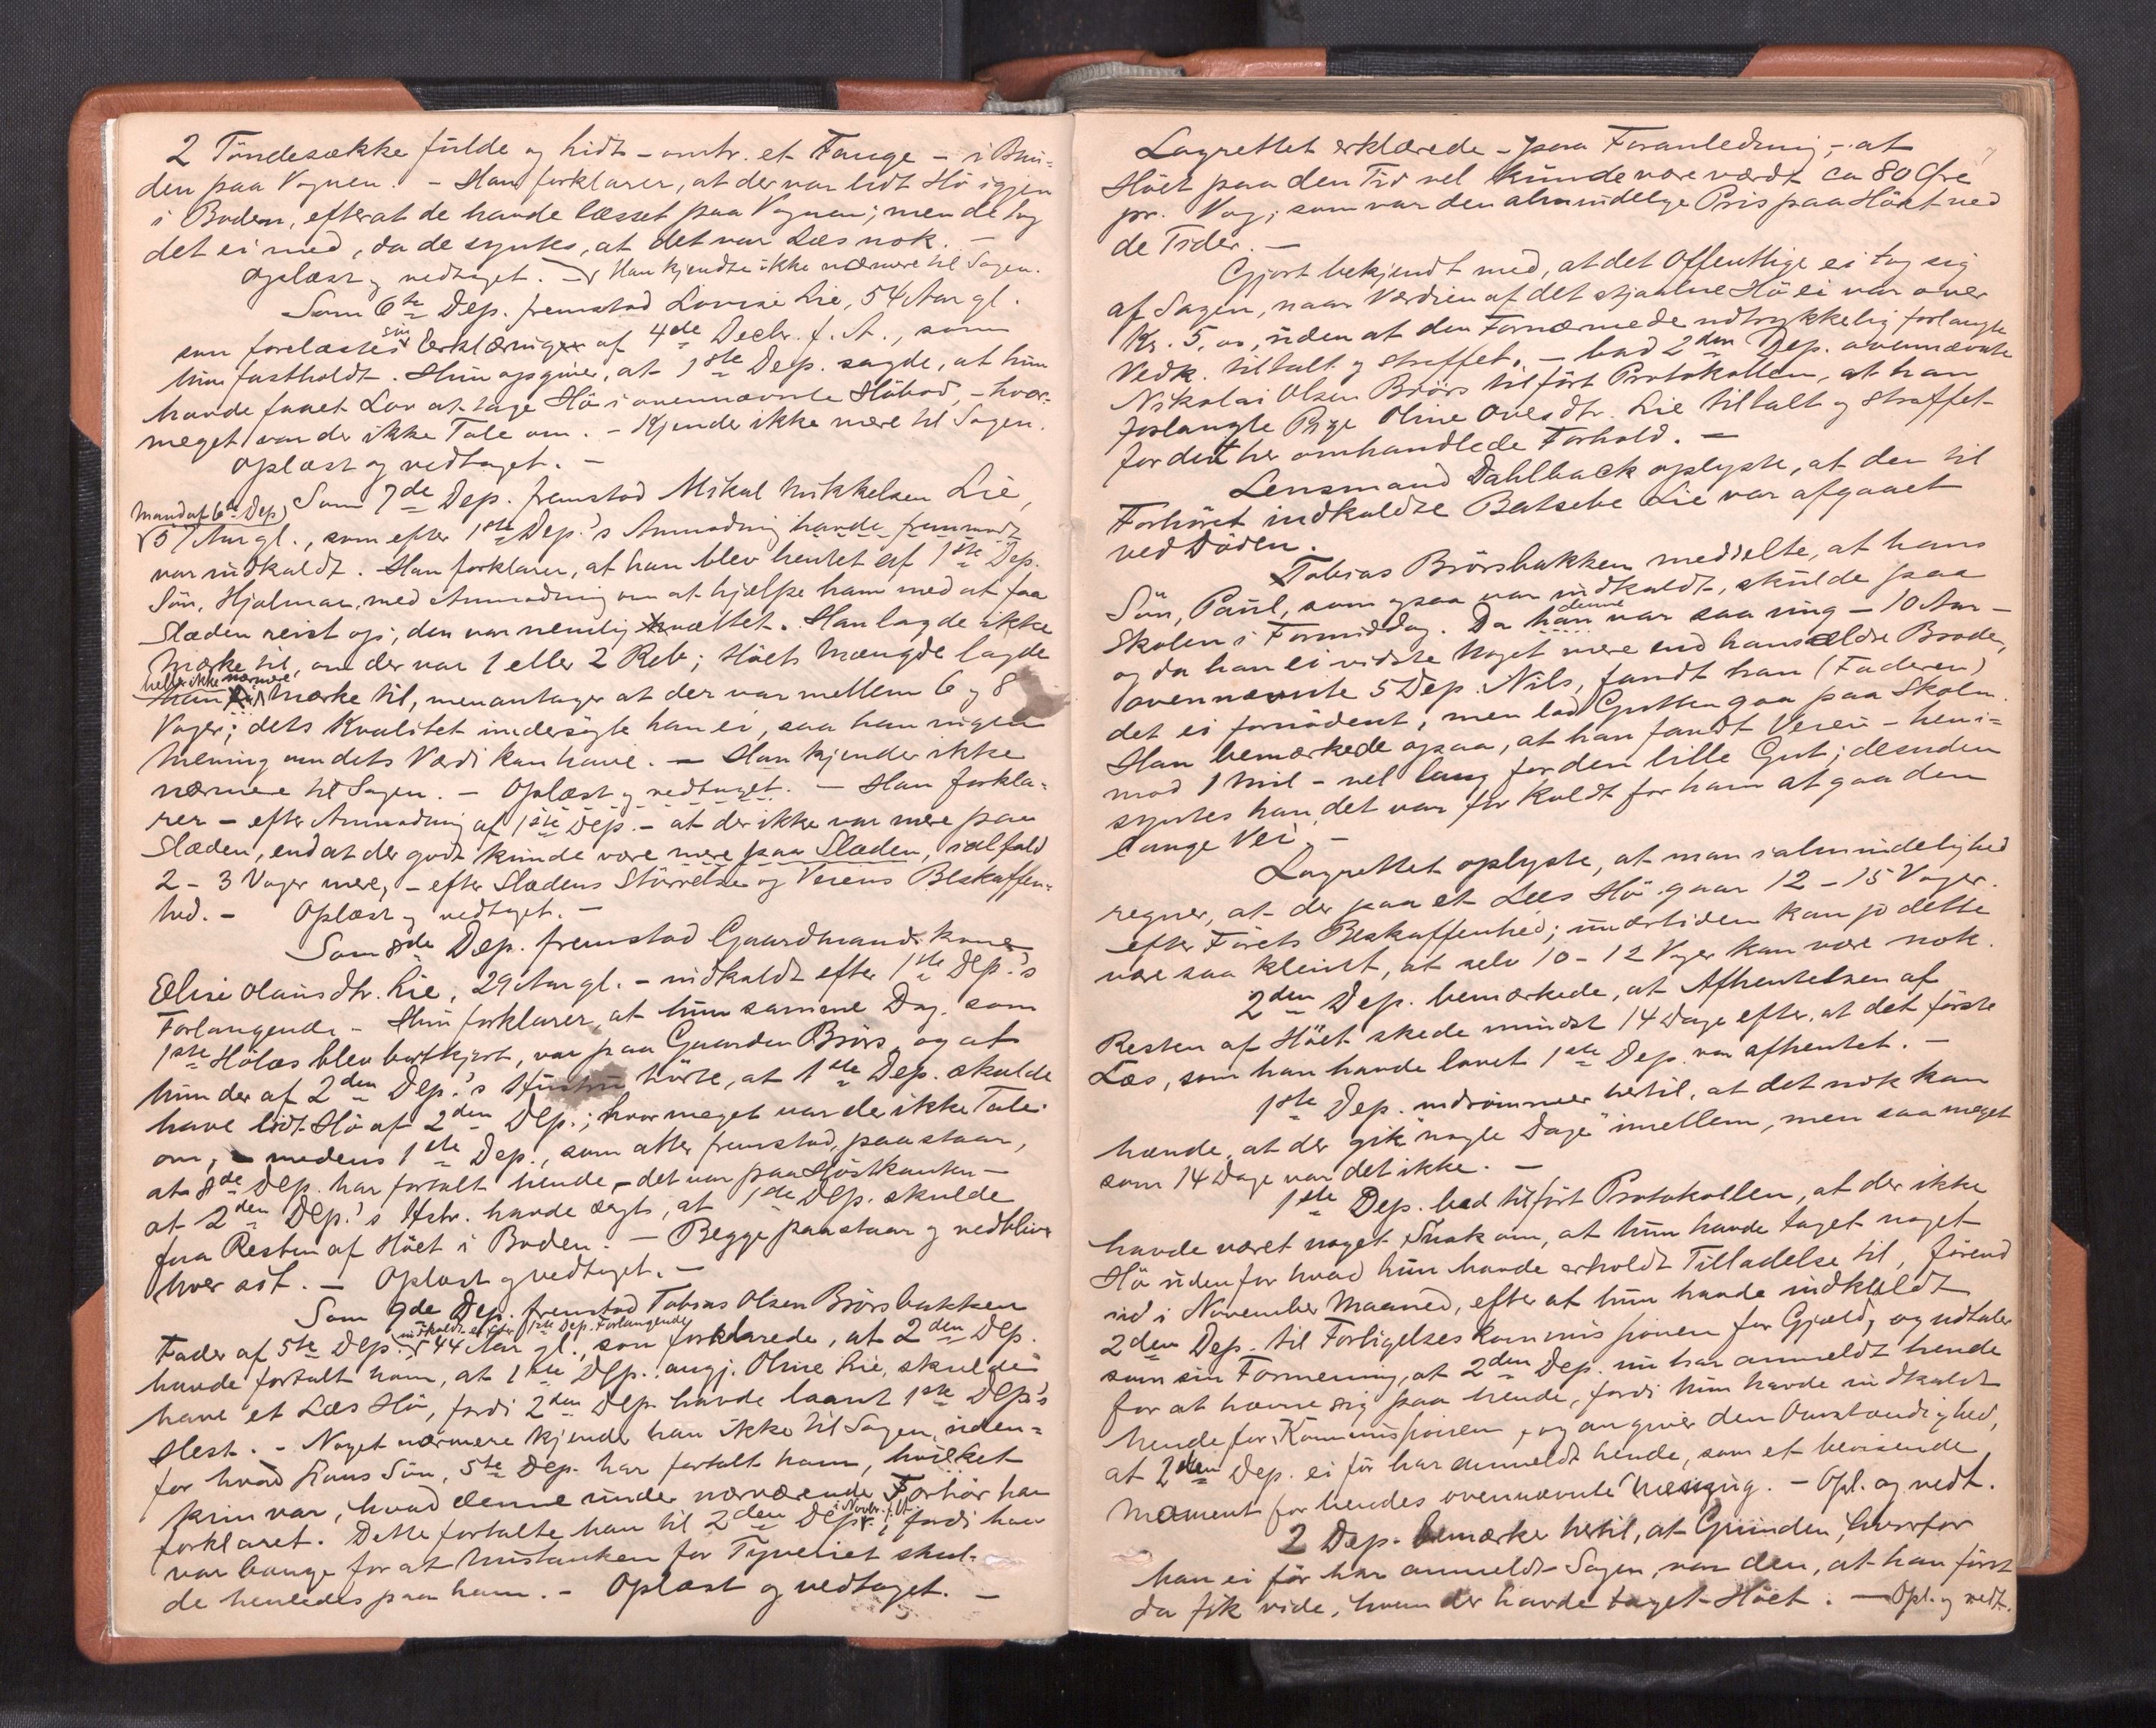 2 Töndesække fulde og lidt - omtr. et Fange - i Bun-
den paa Vognen. - Han forklarer, at der var lidt Hö igjen
i Boden, efterat de havde læsset paa Vognen; men de tog
det ei med, da de syntes, at det var Læs nok. -
Oplæst og vedtaget. - Han kjendte ikke nærmere til Sagen.
Som 6te Dep. fremstod Lovise Lie, 54 Aar gl.
som forelæstes sin Erklæringer af 4de Decbr. f. A., som
hun fastholdt. Hun opgiver, at 1ste Dep. sagde, at hun
havde faaet Lov at tage Hö i ovennævnte Höbod, - hvor-
meget var der ikke Tale om. - Kjender ikke mere til Sagen.
Oplæst og vedtaget. -
Som 7de Dep. fremstod Mikal Mikkelsen Lie,
Mand af 6te Dep.
57 Aar gl., som efter 1ste Dep.'s Anmodning havde fremmødt
var indkaldt. Han forklarer, at han blev hentet af 1ste Dep.
Sön, Hjalmar, med Anmodning om at hjelpe ham med at faa
Slæden reist op; den var nemlig hvæltet. Han lagde ikke
Mærke til, om der var 1 eller 2 Reb; Höets Mængde lagde
heller ikke nærmere
han Mærke til, men antager at der var mellem 6 og 8
Voger; dets Kvalitet undersögte han ei, saa han ingen
Mening om dets Værdi kan have. - Han kjender ikke
nærmere til Sagen. - Oplæst og vedtaget. - Han forkla-
rer - efter Anmodning af 1ste Dep. - at der ikke var mere paa
Slæden, end at der godt kunde være mere paa Slæden, ialfald
2 - 3 Voger mere, - efter Slædens Störrelse og Veiens Beskaffen-
hed. - Oplæst og vedtaget. -
Som 8de Dep. fremstod Gaardmandskone
Elise Olausdtr. Lie, 29 Aar gl. - indkaldt efter 1ste Dep.'s
Forlangende - Hun forklarer, at hun samme Dag som
1ste Hölæs blev bortkjørt, var paa Gaarden Brörs og at
hun der af 2den Dep.'s Hustru hörte, at 1ste Dep. skulde
have lidt Hö af 2den Dep.; hvor meget var der ikke Tale
om, - medens 1ste Dep., som atter fremstod, paastaar,
at 8de Dep. har fortalt hende, - det var paa Höstkanten -
at 2den Dep.'s Hstr. havde sagt, at 1ste Dep. skulde
faa Resten af Höet i Boden. - Begge paastaar og vedbliver
hver sit. - Oplæst og vedtaget. -
Som 9de Dep. fremstod Tobias Olsen Brörsbakken
indkaldt efter 1ste Dep. Forlangende
Fader af 5te Dep. 44 Aar gl., som forklarede, at 2den Dep.
havde fortalt ham, at 1ste Dep. angj. Oline Lie, skulde
have et Læs Hö, fordi 2den Dep. havde laant 1ste Dep.'s
Hest. - Noget nærmere kjender han ikke til Sagen, uden-
for hvad hans Sön, 5te Dep. har fortalt ham, hvilket
kun var, hvad denne under nærværende Forhör har
forklaret. Dette fortalte han til 2den Dep. i Novbr. f. A., fordi han
var bange for at Mistanken for Tyveriet skul-
de henledes paa ham. - Oplæst og vedtaget. -
Lagrettet erklærede - paa Foranledning, - at
Höet paa den Tid vel kunde være værdt ca 80 Øre
pr. Vog, som var den almindelige Pris paa Höet ved
de Tider. -
Gjort bekjendt med, at det Offentlige ei tog sig
af Sagen, naar Værdien af det stjaalne Hö ei var over
Kr. 5,00, uden at den Fornærmede udtrykkelig forlangte
Vedk. tiltalt og straffet, - bad 2den Dep. ovennævnte
Nikolai Olsen Brörs tilfört Protokollen, at han
forlangte Pige Oline Ovesdtr. Lie tiltalt og straffet
for det her omhandlede Forhold. -
Lensmand Dahlback oplyste, at den til
Forhöret indkaldte Batsebe Lie var afgaaet
ved Döden.
Tobias Brörsbakken meddelte, at hans
Sön, Paul, som ogsaa var indkaldt, skulde paa
Skolen i Formiddag. Da denne var saa ung - 10 Aar -
og da han ei vidste Noget mere end hans ældre Broder,
ovennævnte 5 Dep. Nils, fandt han (Faderen)
det ei fornødent; men lod Gutten gaa paa Skolen.
Han bemærkede ogsaa, at han fandt Veien - heni-
mod 1 Mil - vel lang for den lille Gut; desuden
syntes han det var for koldt for ham at gaa den
lange Vei. -
Lagrettet oplyste, at man i almindelighed
regner, at der paa et Læs Hö gaar 12 - 15 Voger.
efter Förets Beskaffenhed; undertiden kan jo dette
være saa kleint, at selv 10 - 12 Voger kan være nok.
2den Dep. bemærkede, at Afhentelsen af
Resten af Höet skede mindst 14 Dage efter, at det förste
Læs, som han havde lovet 1ste Dep. var afhentet. -
1ste Dep. indrömmer hertil, at det nok kan
hænde, at der gik "nogle Dage" imellem, men saa meget
som 14 Dage var det ikke. -
1ste Dep. bad tilfört Protokollen, at der ikke
havde været noget Snak om, at hun havde taget noget
Hö uden for hvad hun havde erholdt Tilladelse til, förend
ud i November Maaned, efter at hun havde indkaldt
2den Dep. til Forligelseskommissionen for Gjæld, og udtaler
som sin Formening, at 2den Dep. nu har anmeldt hende
for at hævne sig paa hende, fordi hun havde indkaldt
hende for Kommissionen, og angiver den Omstændighed,
at 2den Dep. ei för har anmeldt hende, som et bevisende
Moment for hendes ovennævnte Mening. - Opl. og vedt.
2 Dep. bemærker hertil, at Grunden, hvorfor
han ei för har anmeldt Sagen, var den, at han först
da fik vide, hvem der havde taget Höet. - Opl. og vedt.